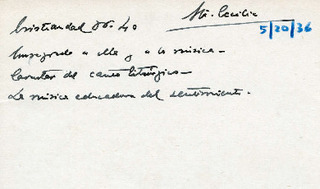 Sta. Cecilia
5/20/36
Cristiandad 
a ella y a la música—
Caracter del canto litúrgico—
La música educadora del sentimiento.